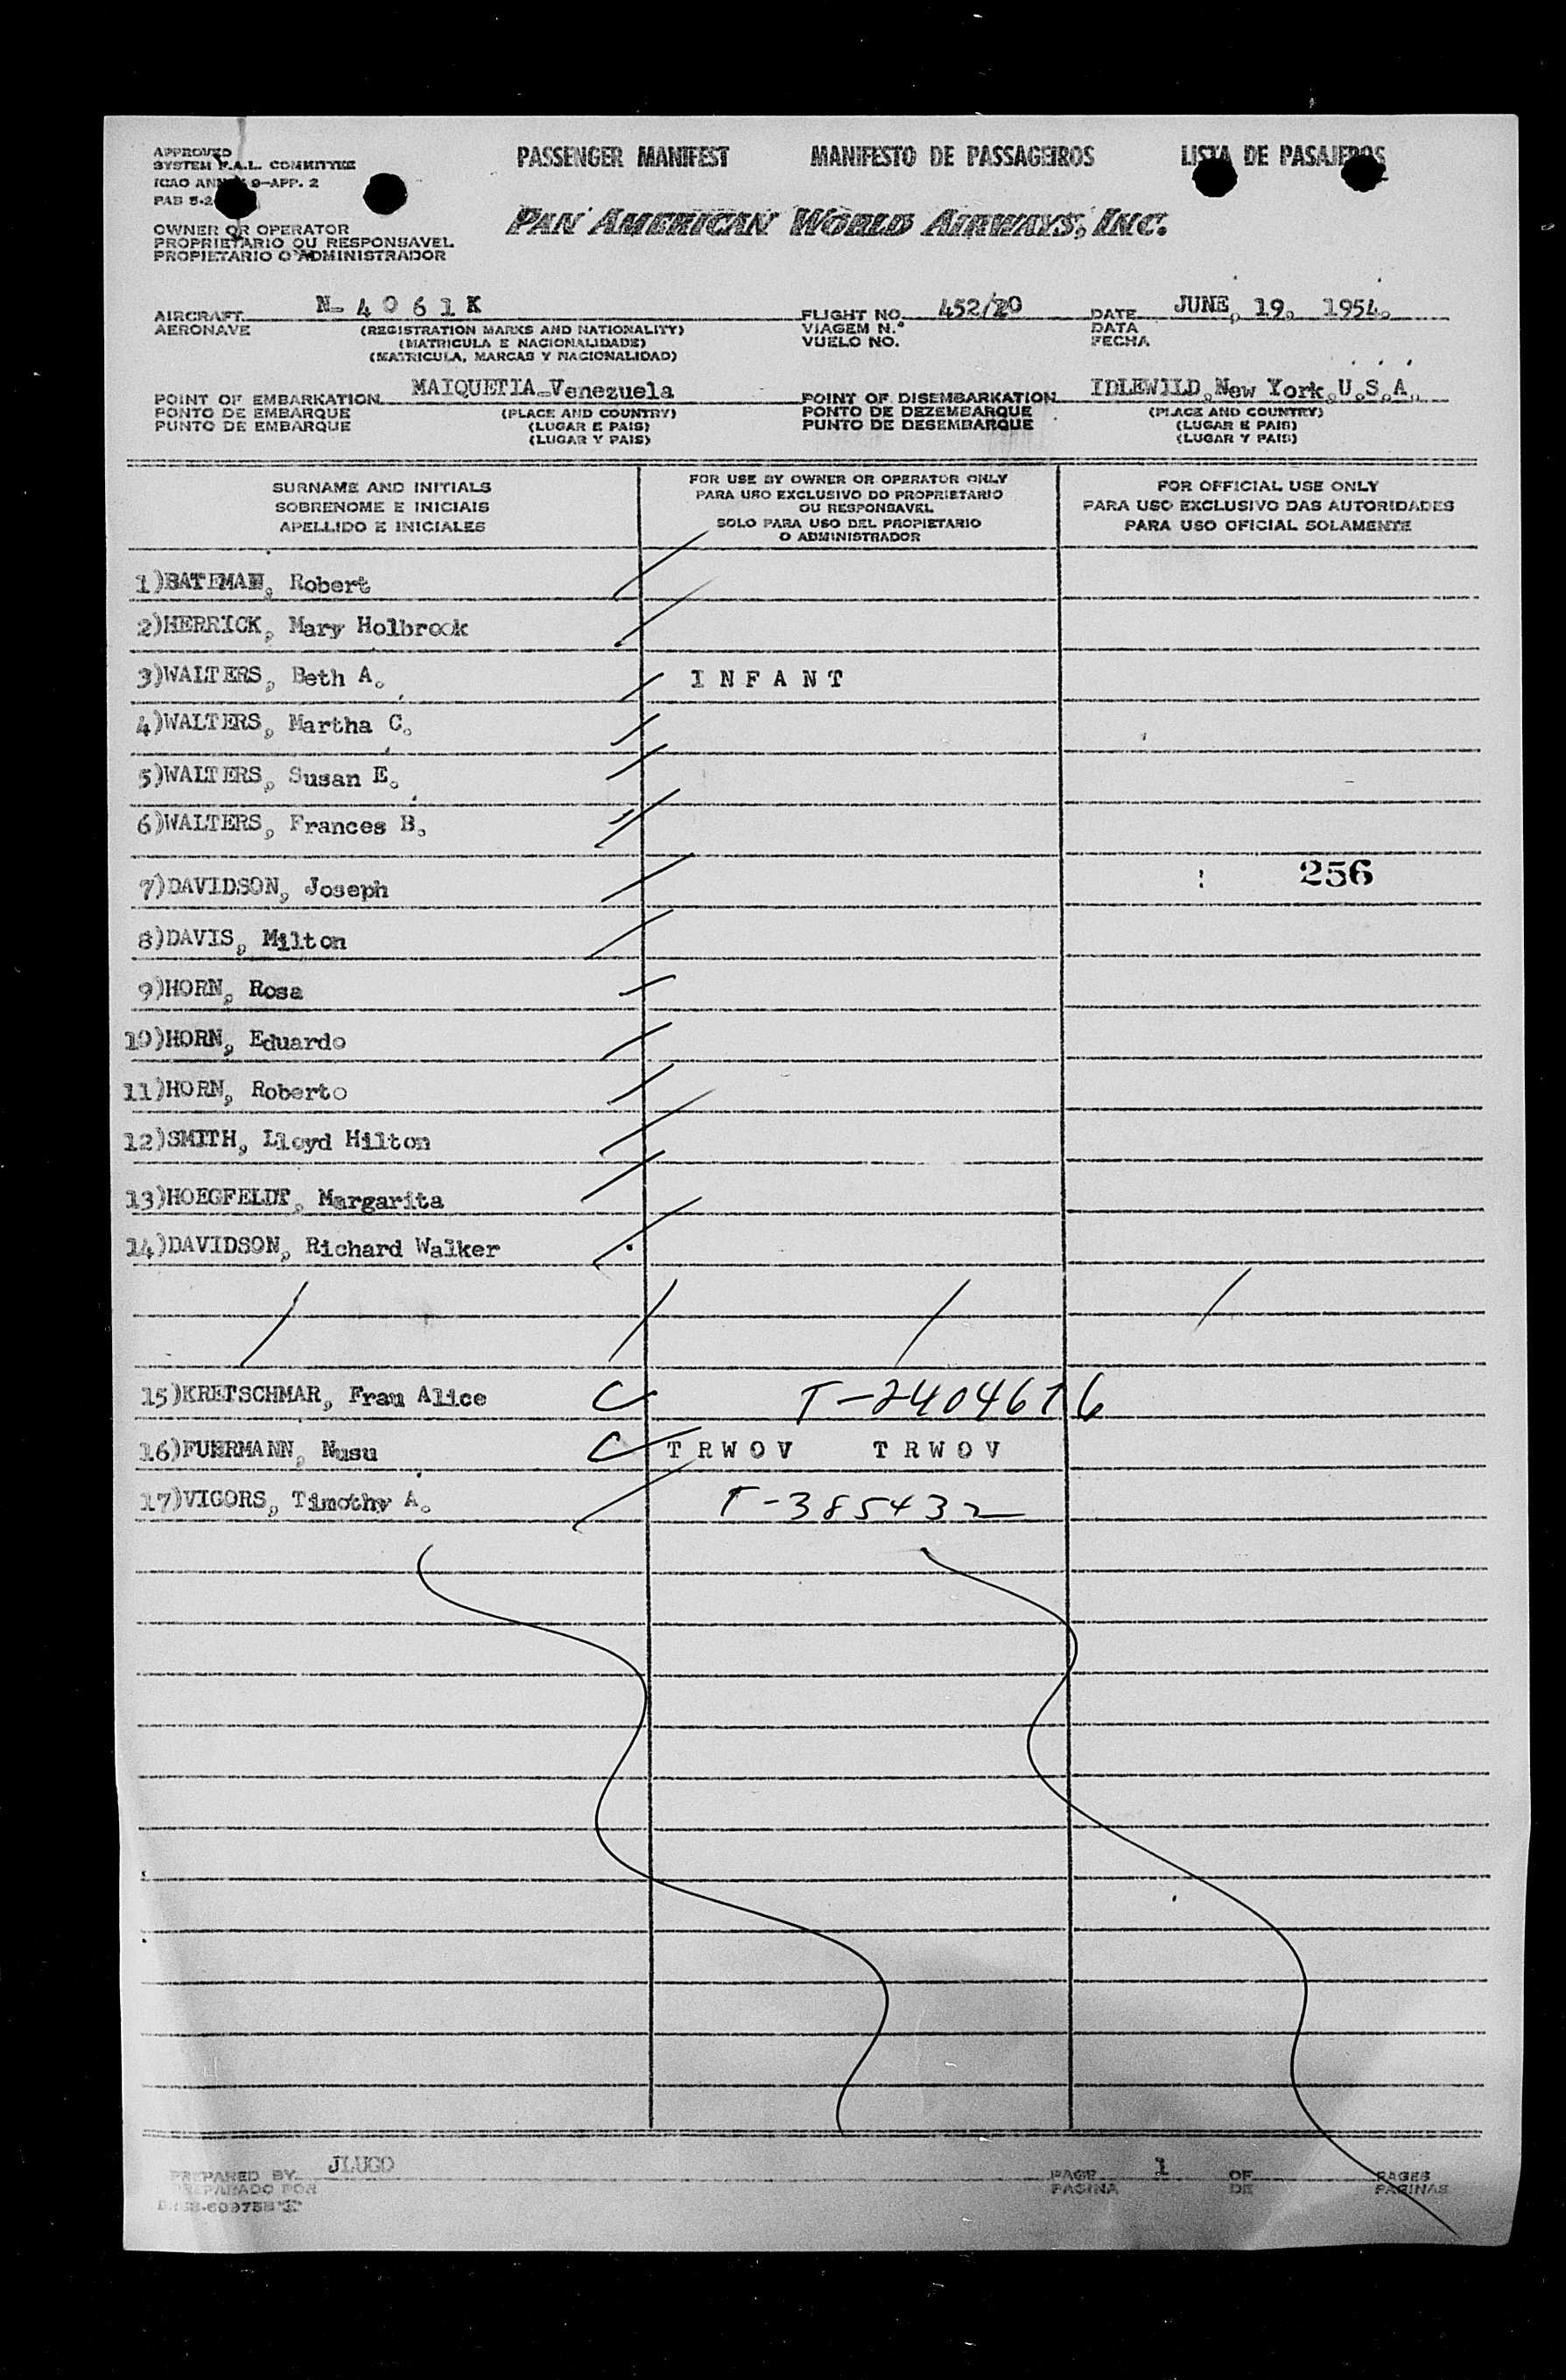 APPROVED
SYSTEM F.A.L. COMMITTEE
ICAO ANNEX 9-APP. 2
PAB 5-2
PASSENGER MANIFEST MANIFESTO DE PASSAGEIROS LISTA DE PASAJEROS
PAN AMERICAN WORLD AIRWAYS, INC.
OWNER OR OPERATOR
PROPRIETARIO OU RESPONSAVEL
PROPIETARIO O ADMINISTRADOR
AIRCRAFT N- 4 0 6 1 K FLIGHT NO. 452/20 DATE JUNE, 19. 1954.
AERONAVE (REGISTRATION MARKS AND NATIONALITY) VIAGEM N.º DATA
(MATRICULA E NACIONALIDADE) VUELO NO. FECHA
(MATRICULA, MARCAS Y NACIONALIDAD)
POINT OF EMBARKATION MAIQUETIA-Venezuela POINT OF DISEMBARKATION IDLEWILD, New York, U.S.A.
PONTO DE EMBARQUE (PLACE AND COUNTRY) PONTO DE DEZEMBARQUE (PLACE AND COUNTRY)
PUNTO DE EMBARQUE (LUGAR E PAIS) PUNTO DE DESEMBARQUE (LUGAR E PAIS)
(LUGAR Y PAIS) (LUGAR Y PAIS)
SURNAME AND INITIALS
SOBRENOME E INICIAIS
APELLIDO E INICIALES
FOR USE BY OWNER OR OPERATOR ONLY
PARA USO EXCLUSIVO DO PROPRIETARIO
OU RESPONSAVEL
SOLO PARA USO DEL PROPIETARIO
O ADMINISTRADOR
FOR OFFICIAL USE ONLY
PARA USO EXCLUSIVO DAS AUTORIDADES
PARA USO OFICIAL SOLAMENTE
1)BATEMAN, Robert
2)HERRICK, Mary Holbrook
3)WALTERS, Beth A. I N F A N T
4)WALTERS, Martha C.
5)WALTERS, Susan E.
6)WALTERS, Frances B.
7)DAVIDSON, Joseph 256
8)DAVIS, Milton
9)HORN, Rosa
10)HORN, Eduardo
11)HORN, Roberto
12)SMITH, Lloyd Hilton
13)HOEGFELDT, Margarita
14)DAVIDSON, Richard Walker
15)KRETSCHMAR, Frau Alice C T-2404676
16)FUHRMANN, Nusu C T R W O V T R W O V
17)VIGORS, Timothy A. T-385432
PREPARED BY JLUGO PAGE 1 OF PAGES
PREPARADO POR PAGINA DE PAGINAS